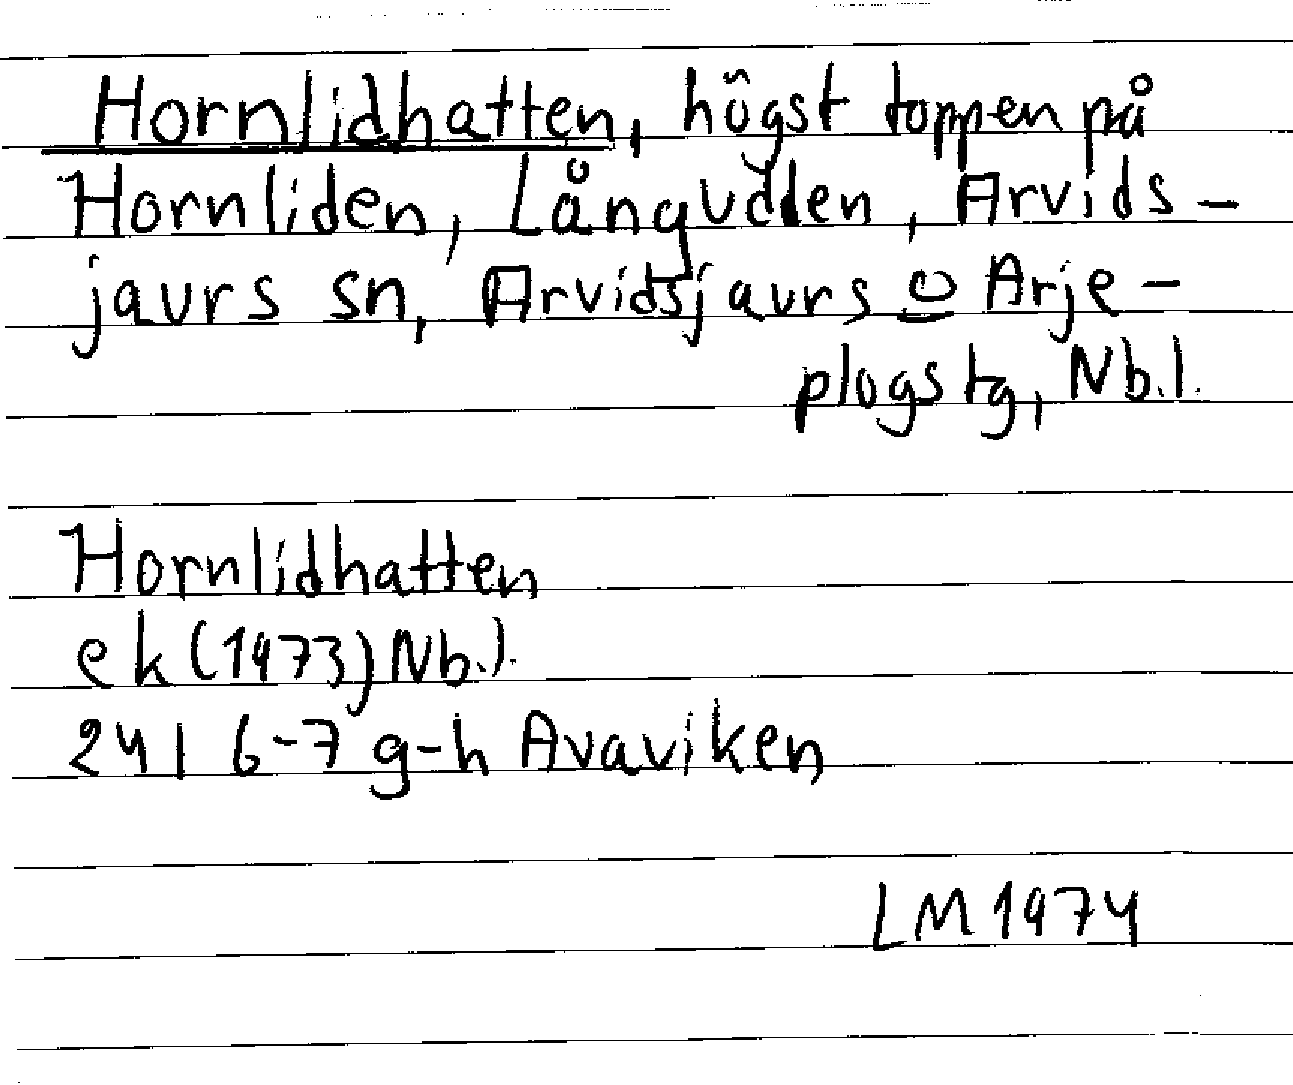 Hornlidhatten, högst toppen på
Hornliden, Långudden, Arvids-
jaurs sn, Arvidsjaurs o Arje-
plogs tg, Nb.l.
Hornlidhatten
ek (1973) Nb.l.
24 I 6-7 g-h Avaviken
LM 1974